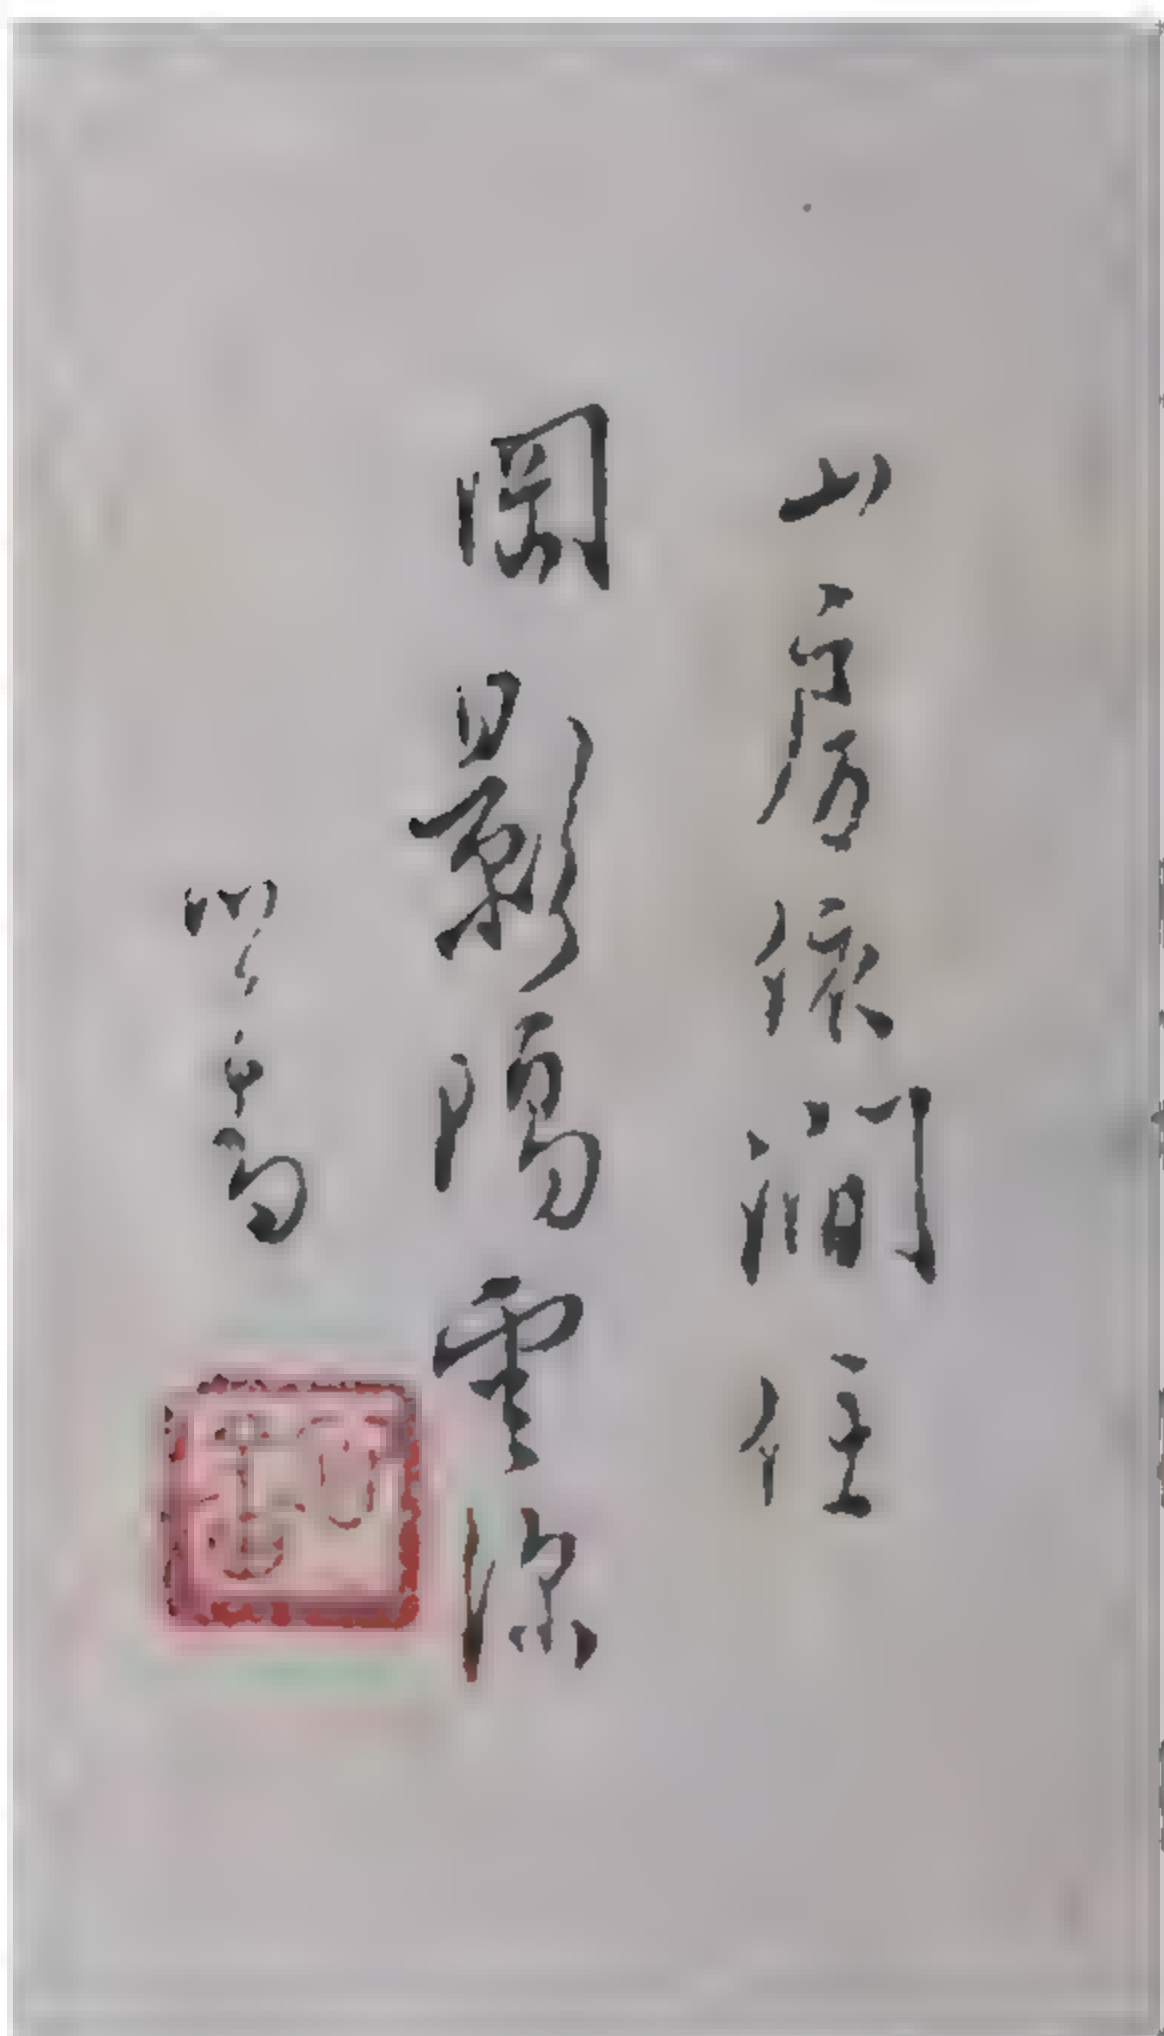 山房依澗住
岡影隔雲深